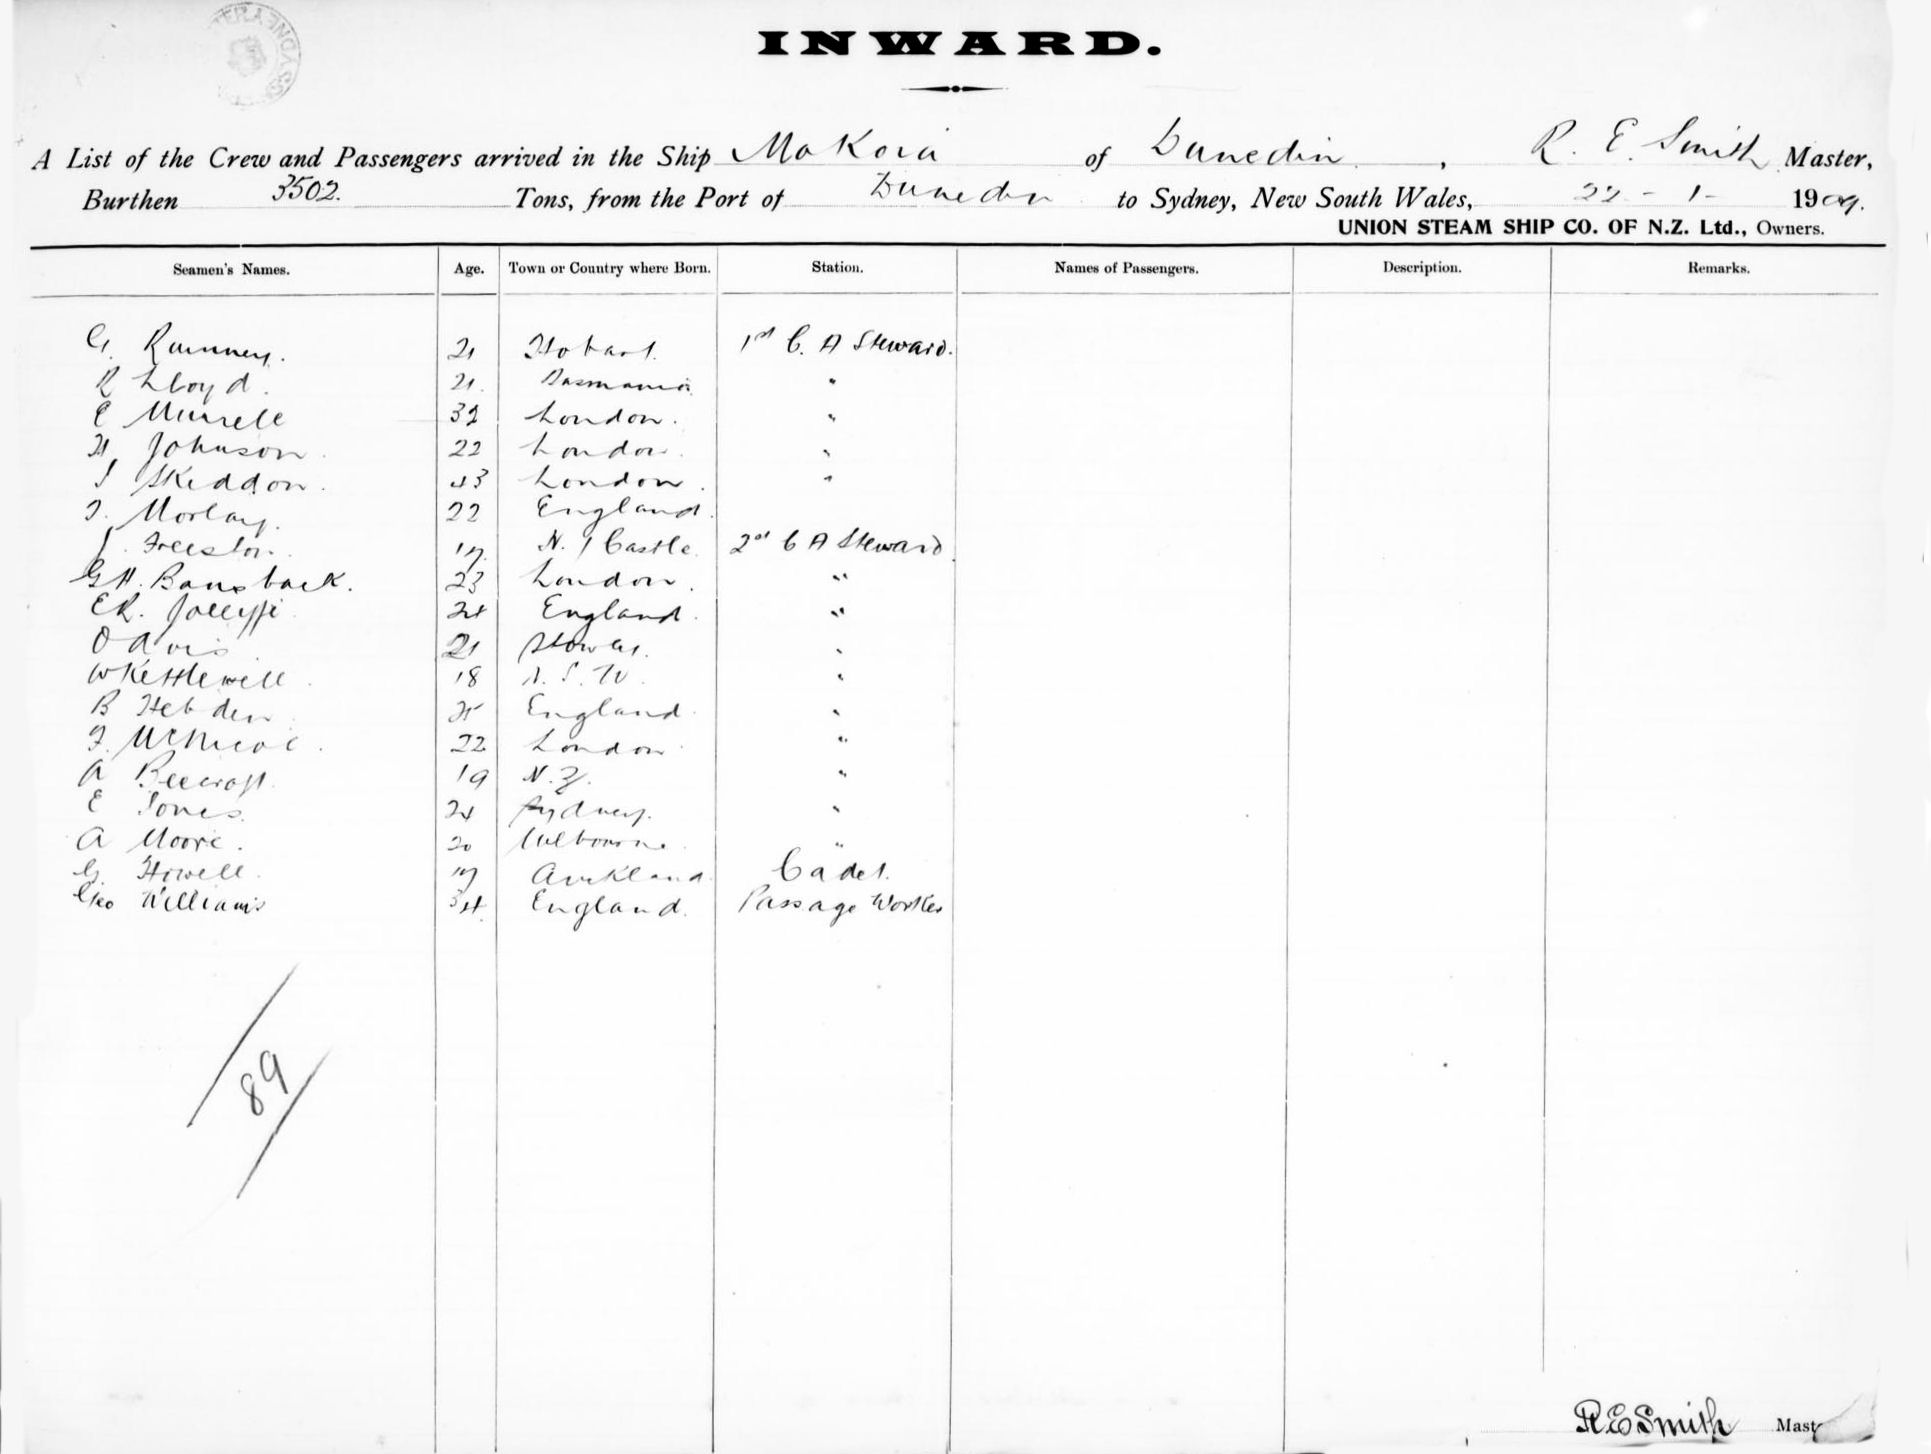 INWARD.
A List of the Crew and Passengers arrived in the Ship Mokoia of Dunedin, R. E. Smith Master,
Burthen 3502. Tons, from the Port of Dunedin to Sydney, New South Wales, 22 - 1 - 1909.
UNION STEAM SHIP CO. OF N.Z. Ltd., Owners.
Seamen's Names. Age. Town or Country where Born. Station. Names of Passengers. Description. Remarks.
G. Rumney. 21 Hobart. 1st C. A Steward.
R Lloyd. 21. Tasmania "
E Murrell 32 London. "
H. Johnson. 22 London. "
J Skeddon. 43 London. "
T. Morlay. 22 England.
J. Freeston. 17. N. / Castle. 2nd C A Steward
G H. Bansback. 23 London. "
E R. Jolliffe 24 England. "
O Davis 21 "
W Kettlewell. 18 N. S. W. "
B Hebden 25 England. "
F. McNicol. 22 London "
A Beecroft. 19 N. Z. "
E Jones. 24 Sydney. "
A Moore. 20 Melbourne. "
G. Howell. 17 Auckland. Cadet.
Geo Williams 34. England. Passage Worker
89
R E Smith Mast